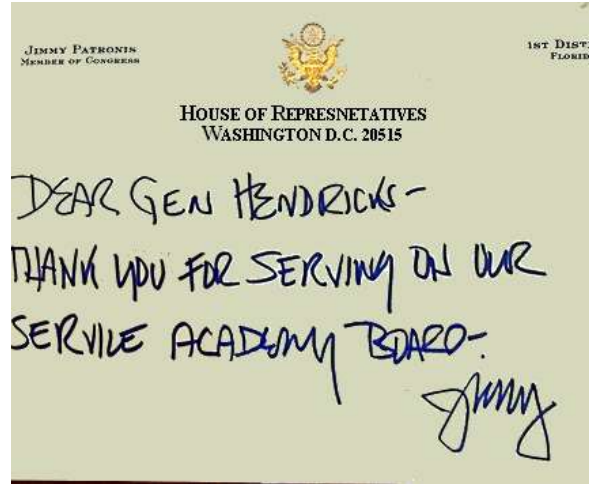 JIMMY PATRONIS
MEMBER OF CONGRESS
1ST DIST
FLORID
HOUSE OF REPRESNETATIVES
WASHINGTON D.C. 20515
DEAR GEN HENDRICKS-
THANK YOU FOR SERVING ON OUR
SERVICE ACADEMY BOARD-
Jimmy